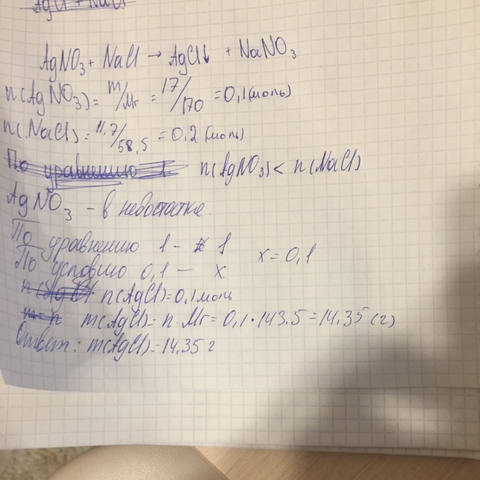 AgCl + NaCl
AgNO3 + NaCl → AgCl↓ + NaNO3
n(AgNO3) = m/Mr = 17/170 = 0,1 (моль)
n(NaCl) = 11,7/58,5 = 0,2 (моль)
По уравнению 1 n(AgNO3) < n(NaCl)
AgNO3 - в недостатке.
По уравнению 1 - 1 x = 0,1
По условию 0,1 — x
n(AgCl) n(AgCl) = 0,1 моль
m(AgCl) = n · Mr = 0,1 · 143,5 = 14,35 (г)
Ответ: m(AgCl) = 14,35 г